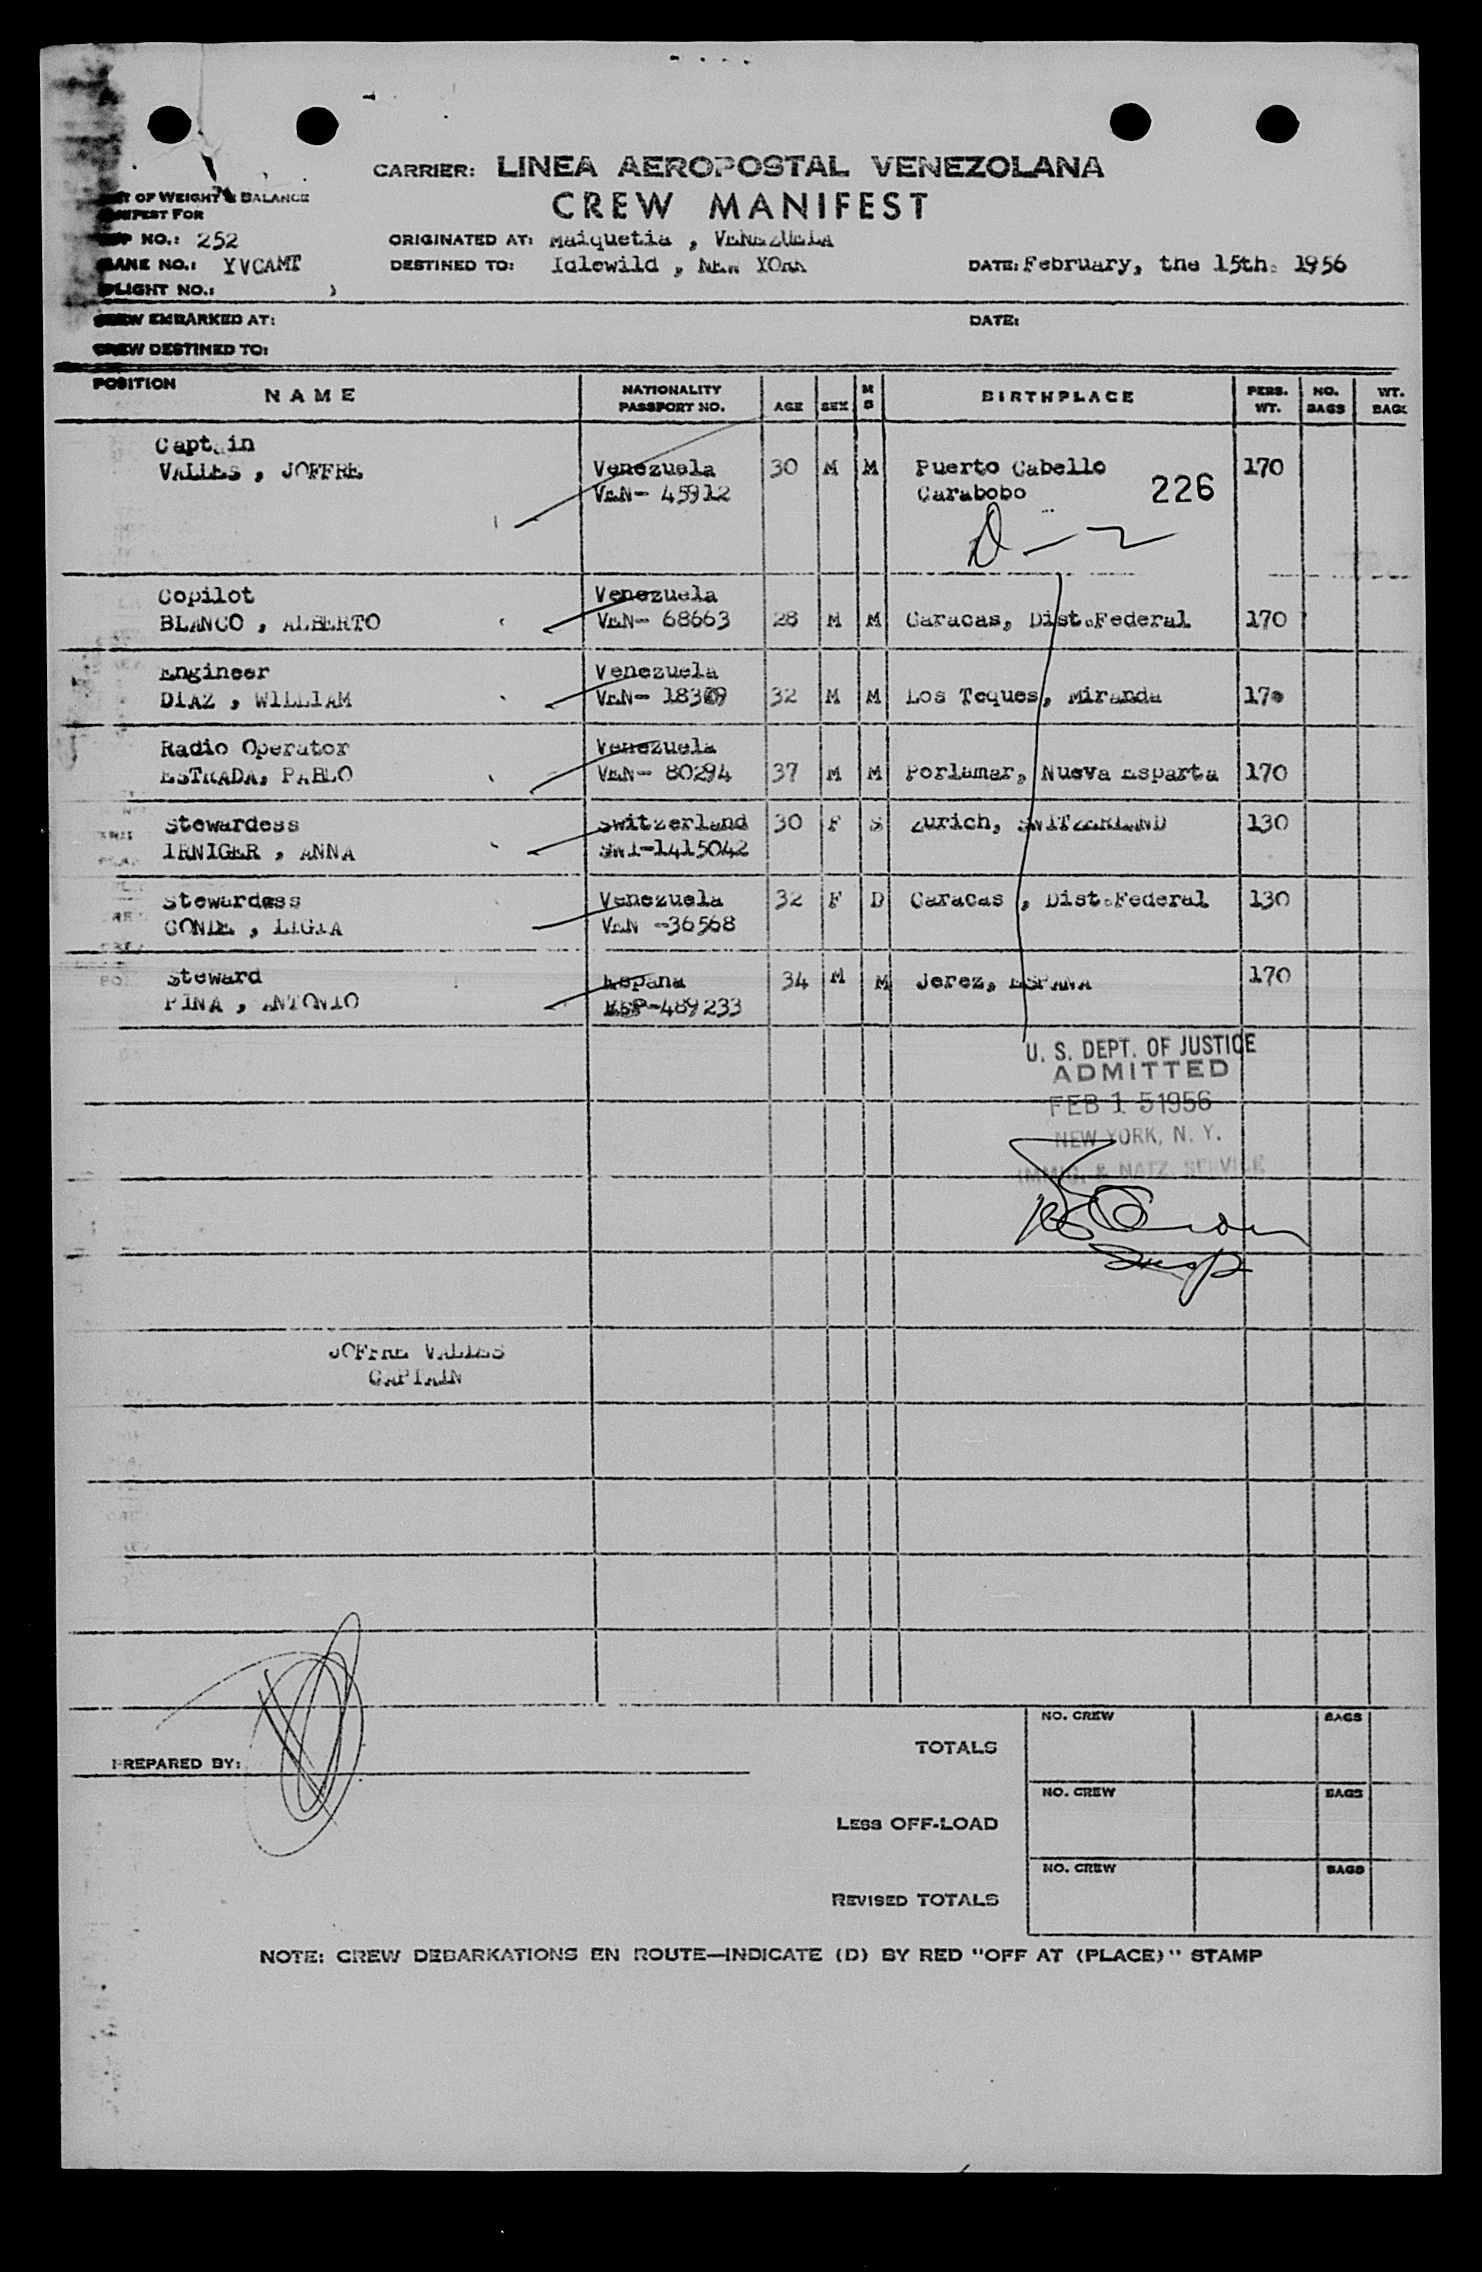 CARRIER: LINEA AEROPOSTAL VENEZOLANA
OF WEIGHT & BALANCE
CREW MANIFEST
FOR
NO.: 252
ORIGINATED AT: Maiquetia , VENEZUELA
NO.: YVCAMT
DESTINED TO: Idlewild , NEW YORK
DATE: February, the 15th. 1956
FLIGHT NO.:
CREW EMBARKED AT:
DATE:
CREW DESTINED TO:
POSITION
NAME
NATIONALITY
PASSPORT NO.
AGE
SEX
M
S
BIRTHPLACE
PERS.
WT.
NO.
BAGS
WT.
BAGS
Captain
VALLES , JOFFRE
Venezuela
VEN- 45912
30 M M
Puerto Cabello
Carabobo
226
170
Copilot
BLANCO , ALBERTO
Venezuela
VEN- 68663
28 M M Caracas, Dist.Federal 170
Engineer
DIAZ , WILLIAM
Venezuela
VEN-
32 M M Los Teques, Miranda 170
Radio Operator
ESTRADA, PABLO
Venezuela
VEN- 80294
37 M M Porlamar, Nueva Esparta 170
Stewardess
IRNIGER , ANNA
Switzerland
SWI-1415042
30 F S Zurich, SWITZERLAND 130
Stewardess
CONDE , LIGIA
Venezuela
VEN -36568
32 F D Caracas , Dist.Federal 130
Steward
PINA , ANTONIO
Espana
ESP-489233
34 M M Jerez, ESPANA 170
U. S. DEPT. OF JUSTICE
ADMITTED
FEB 15 1956
NEW YORK, N. Y.
IMMIG. & NATZ. SERVICE
Insp
JOFFRE VALLES
CAPTAIN
PREPARED BY:
TOTALS
NO. CREW
BAGS
LESS OFF-LOAD
NO. CREW
BAGS
REVISED TOTALS
NO. CREW
BAGS
NOTE: CREW DEBARKATIONS EN ROUTE—INDICATE (D) BY RED "OFF AT (PLACE)" STAMP